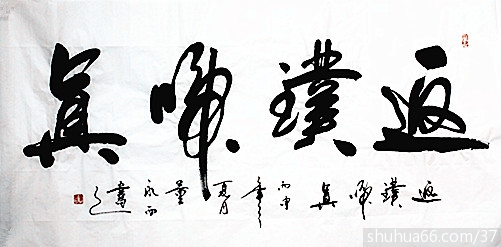 返璞歸真
返璞歸真 丙申年 夏月
www.shuhua66.com/37